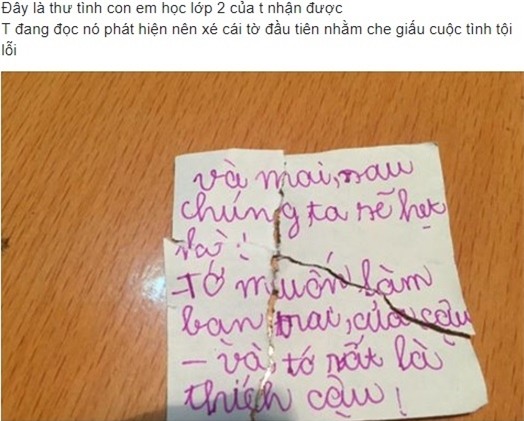 Đây là thư tình con em học lớp 2 của t nhận được
T đang đọc nó phát hiện nên xé cái tờ đầu tiên nhằm che giấu cuộc tình tội
lỗi
và mai, sau
chúng ta sẽ hẹt
hà!
- Tớ muốn làm
bạn trai, của cậu
- và, tớ rất là
thích cậu!